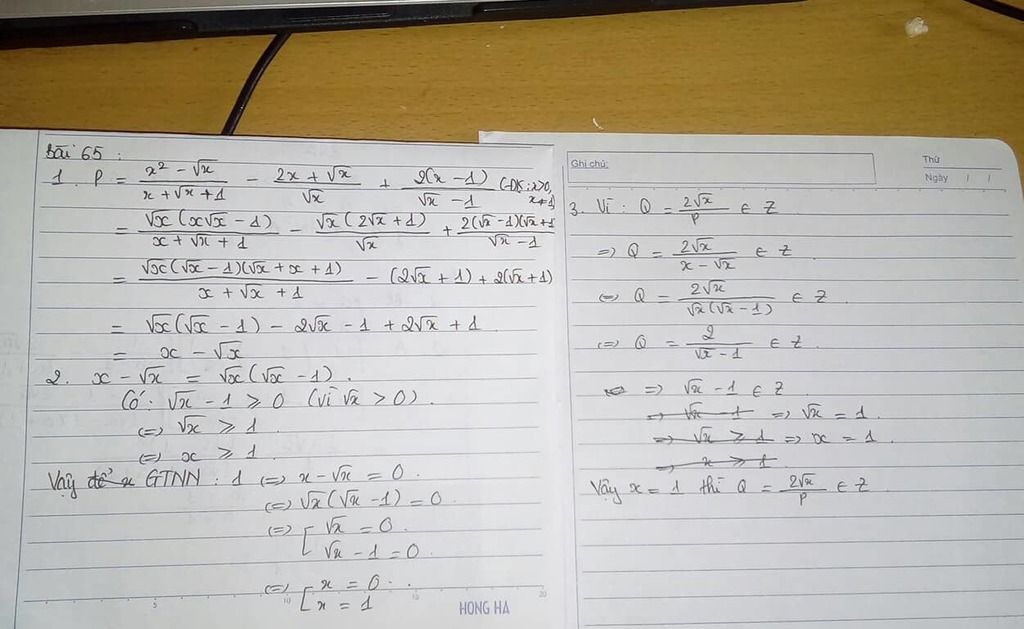 Bài 65 :
1. P = x² - √x / x + √x + 1 - 2x + √x / √x + 2(x - 1) / √x - 1 (ĐK: x>0, x≠1)
= √x (x√x - 1) / x + √x + 1 - √x (2√x + 1) / √x + 2(√x - 1)(√x + 1 / √x - 1
= √x(√x - 1)(√x + x + 1) / x + √x + 1 - (2√x + 1) + 2(√x + 1)
= √x(√x - 1) - 2√x - 1 + 2√x + 1
= x - √x
2. x - √x = √x(√x - 1).
Có: √x - 1 ⩾ 0 (vì √x > 0).
(=) √x ⩾ 1
(=) x ⩾ 1
Vậy để x GTNN : 1 (=) x - √x = 0
(=) √x(√x - 1) = 0
(=) [ √x = 0
√x - 1 = 0
(=) [ x = 0
x = 1
5 10 15 20
HONG HA
Ghi chú:
Thứ
Ngày / /
3. Vì : Q = 2√x / P ∈ Z
=) Q = 2√x / x - √x ∈ Z
(=) Q = 2√x / √x(√x - 1) ∈ Z
(=) Q = 2 / √x - 1 ∈ Z.
=) √x - 1 ∈ Z
=) √x - 1 =) √x = 1.
=) √x ⩾ 1 =) x = 1.
=) x ⩾ 1
Vậy x = 1 thì Q = 2√x / P ∈ Z